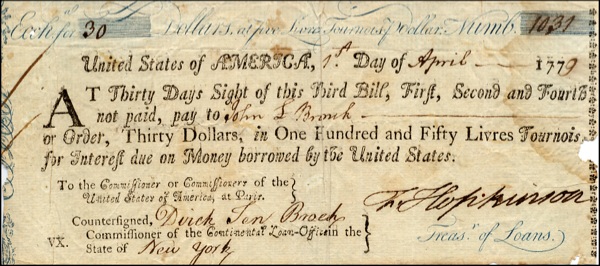 Exch. for 30 Dollars, at five Livres Tournois ⅌ Dollar. Numb. 1031
United States of AMERICA, 1st Day of April 1779
AT Thirty Days Sight of this Third Bill, First, Second and Fourth
not paid, pay to John L Bronk
or Order, Thirty Dollars, in One Hundred and Fifty Livres Tournois,
for Interest due on Money borrowed by the United States.
To the Commissioner or Commissioners of the
United States of America, at Paris.
Countersigned, Dirck Ten Broeck
VX. Commissioner of the Continental Loan-Office in the
State of New York
F. Hopkinson
Treasr. of Loans.